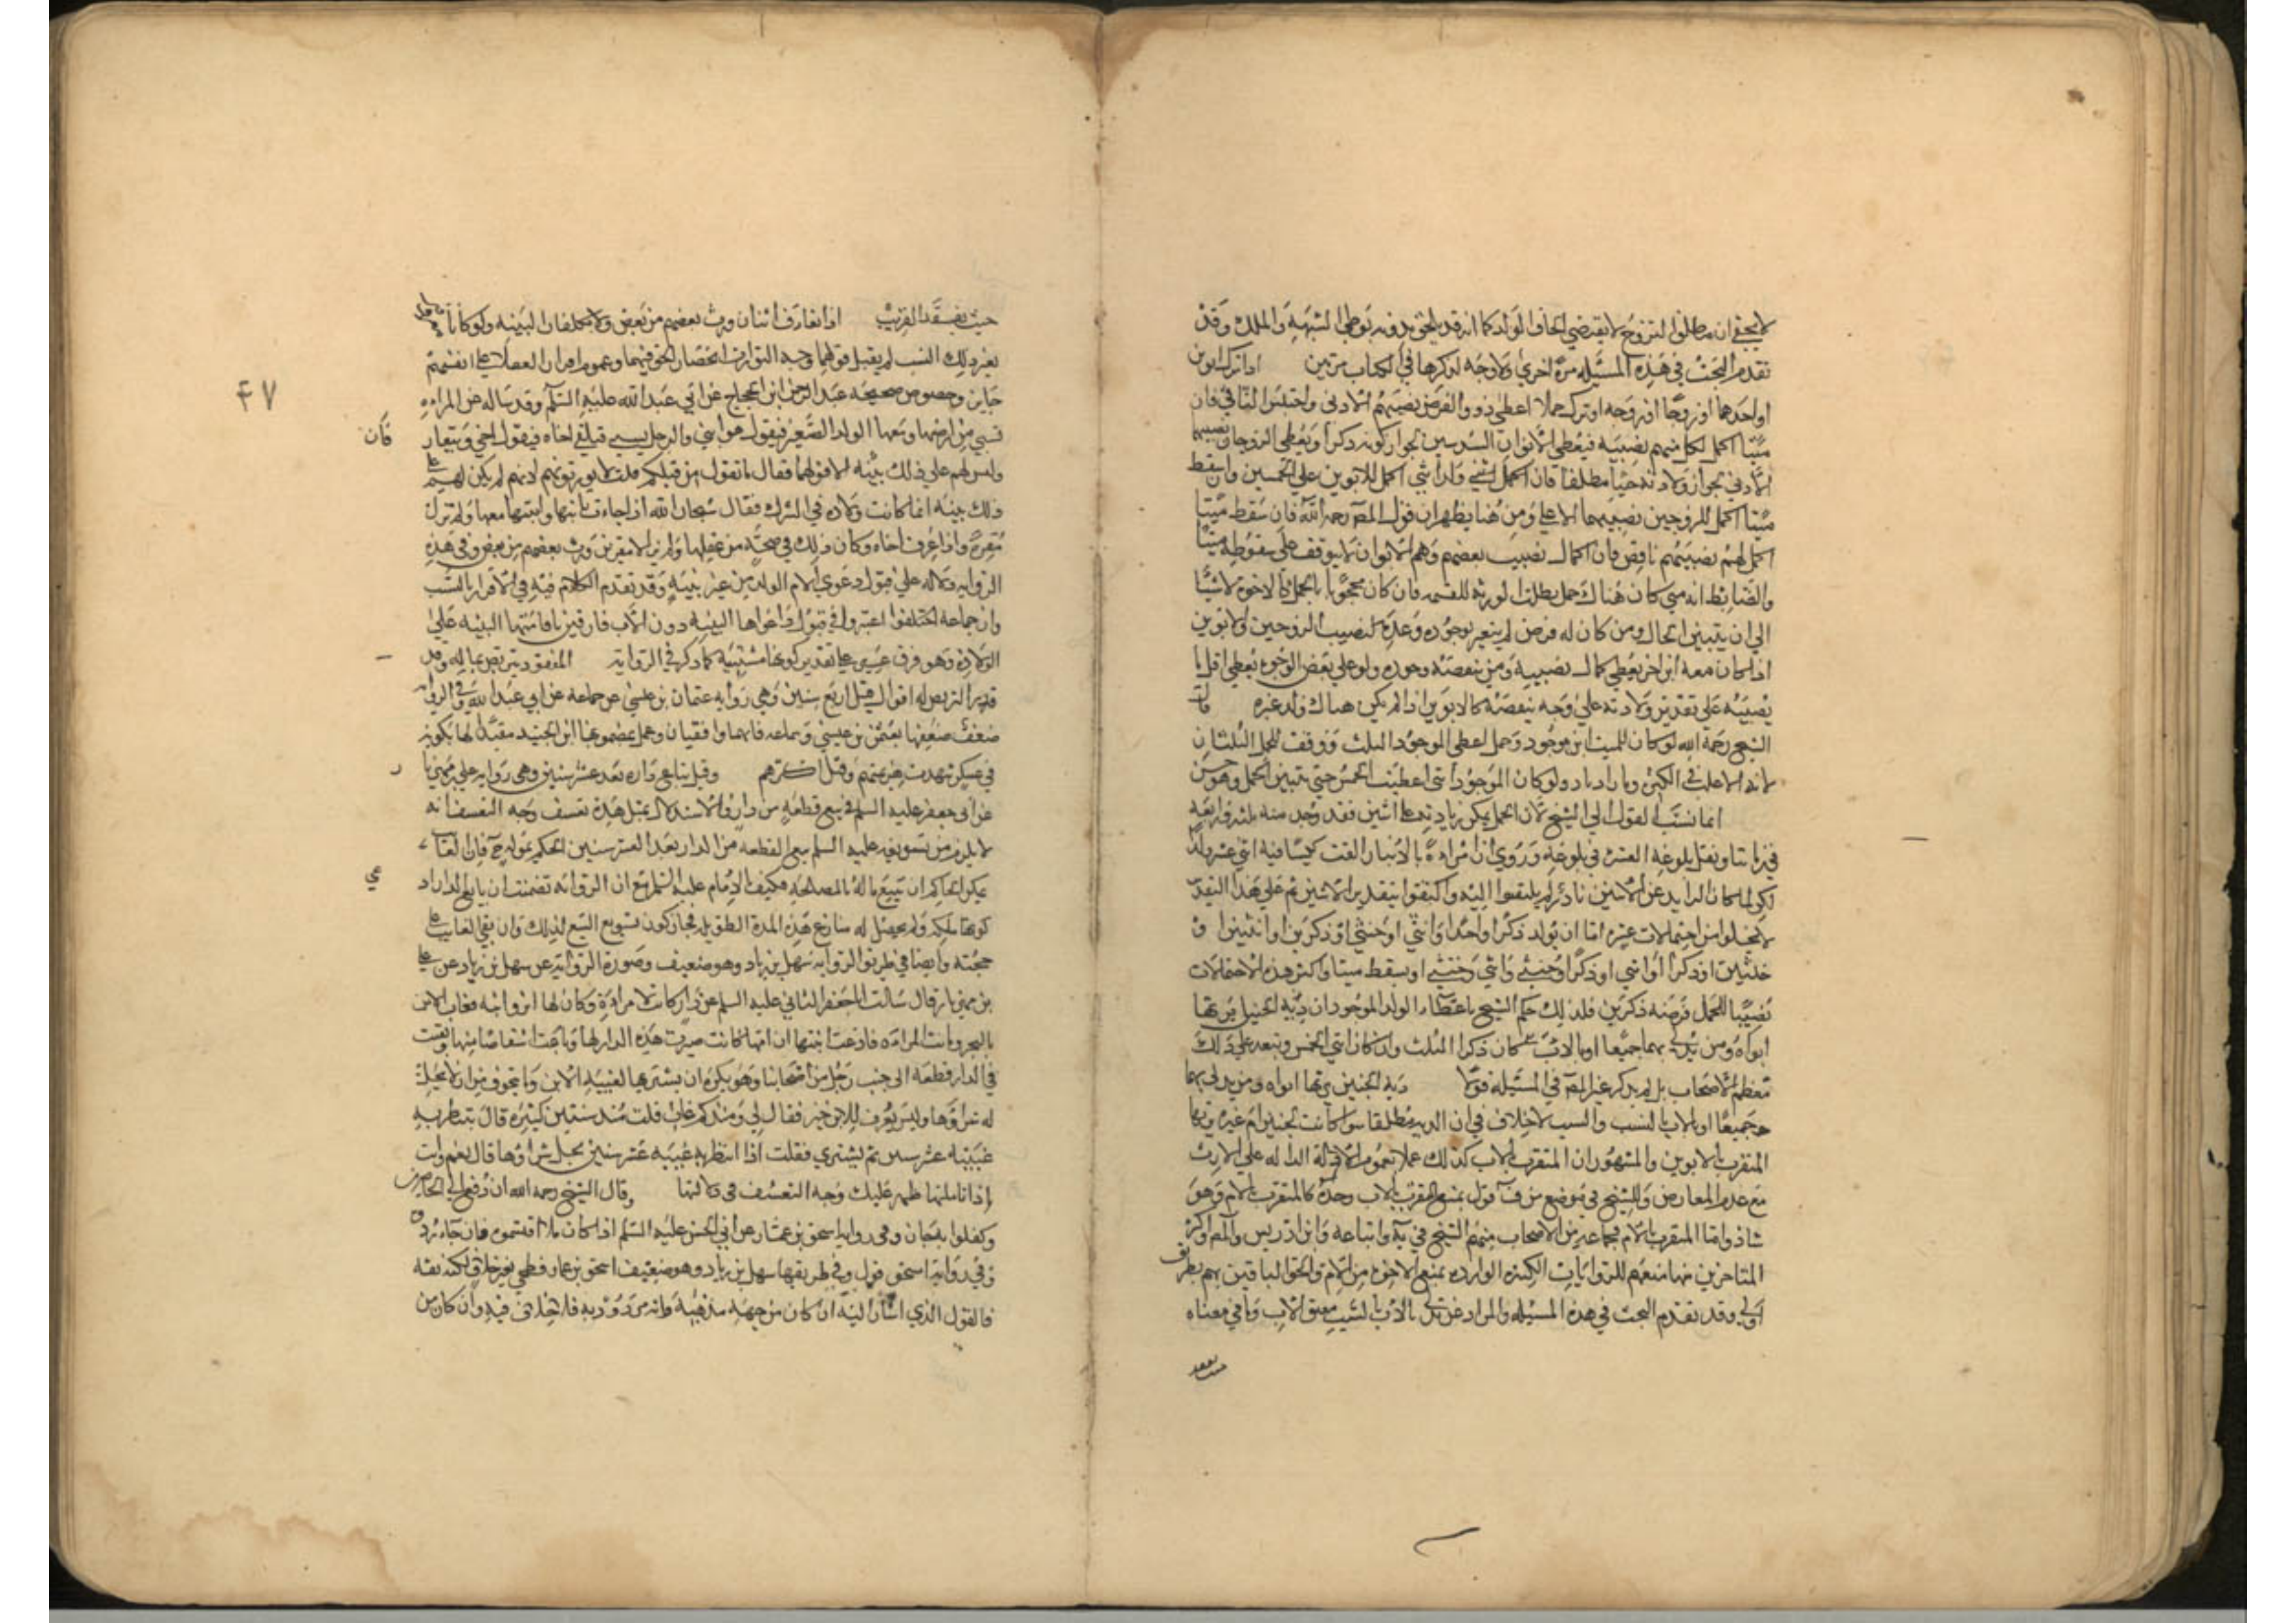 لا يخفى ان مطلق التزوج لا يقتضي الحاق الولد كما انه قد يلحق بدونه بوطي الشبهة والملك وقد
تقدم البحث في هذه المسئله مرة اخرى ولا وجه لذكرها في الكتاب مرتين اذا ترك ابوين
او احدهما او زوجا او زوجه او ترك حملا اعطي ذوو الفرض نصيبهم الادنى واحتبس الباقي فان
ميتا اكمل لكل منهم نصيبه فيعطى الابوان السدسين لجواز كونه ذكرا ويعطى الزوجان نصيبهما
الادنى لجواز ولادته حيا مطلقا فان اكمل للابوين على الخمسين وان سقط
ميتا اكمل للزوجين نصيبهما الاعلى ومن هنا يظهر ان قول المص رحمه الله فان سقط ميتا
اكمل لهم نصيبهم ناقص فان اكمال نصيب بعضهم وهم الابوان لا يتوقف على سقوطه ميتا
والضابط انه متى كان هناك حمل وطلب الورثه القسمه فان كان محجوبا بالحمل كالاخوة لا شيئا
الى ان يتبين الحال ومن كان له فرض لم يتغير بوجوده وعدمه كنصيب الزوجين والابوين
اذا كان معه ابن اخر يعطى كمال نصيبه ومن ينقصه وجوده ولو على بعض الوجوه يعطى اقل ما
يصيبه على تقدير ولادته على وجه ينقصه كالابوين اذا لم يكن هناك ولد غيره
الشيخ رحمه الله لو كان للميت ابن موجود وحمل اعطي الموجود الثلث ووقف للحمل الثلثان
لانه الاغلب في الكثره وما زاد نادر ولو كان الموجود انثى اعطيت الخمس حتى يتبين الحمل وهو حسن
انما نسب القول الى الشيخ لان الحمل يمكن زيادته على اثنين فقد وجد منه ثلثه واربعه
في زماننا ونقل بلوغه العشره وروي ان امراة بالانبار القت كيسا فيه اثني عشر ولدا
لكن لما كان الزايد عن الاثنين نادرا لم يلتفتوا اليه واكتفوا بتقدير الاثنين ثم على هذا التقدير
لا يخلو من احتمالات عشره اما ان يولد ذكرا واحدا او انثى او خنثى او ذكرين او انثيين او
خنثيين او ذكرا وانثى او ذكرا وخنثى وانثى وخنثى او يسقط ميتا واكثر هذه الاحتمالات
نصيبا للحمل فرضه ذكرين فلذلك حكم الشيخ باعطاء الولد الموجود ان دية الجنين يرثها
ابواه ومن يدلي بهما جميعا او بالاب كان ذكرا الثلث وان كان انثى الخمس وتبعه على ذلك
معظم الاصحاب بل لم يذكر غير المص في المسئله قولا دية الجنين يرثها ابواه ومن يدلي بهما
جميعا او بالاب بالنسب والسبب لا خلاف في ان الديه مطلقا سوا كانت لجنين ام غيره يرثها
المتقرب بالابوين والمشهور ان المتقرب بالاب كذلك عملا بعموم الادلة الداله على الارث
مع عدم المعارض وللشيخ في موضع من ف قول بمنع المتقرب بالاب وحده كالمتقرب بالام وهو
شاذ واما المتقرب بالام فجماعه من الاصحاب منهم الشيخ في يه واتباعه وابن ادريس والمص واكثر
المتاخرين منها منعهم للروايات الكثيره الوارده بمنع الاخوه من الام والحق الباقين بهم بطريق
اولى وقد تقدم البحث في هذه المسئله والمراد بمن يدلي بالاب بالسبب معتق الاب وما في معناه
حيث يفقد القريب اذا تعارف اثنان ورث بعضهم من بعض ولا يكلفان البينه ولو كانا
بغير ذلك النسب لم يقبل قولهما وجه التوارث انحصار الحق فيهما وعموم اقرار العقلا على انفسهم
جايز وخصوص صحيحه عبد الرحمن ابن الحجاج عن ابي عبد الله عليه السلم وقد ساله عن المراه
تسبى من ارضها ومعها الولد الصغير فيقول هو ابني والرجل يسبى فيلقى اخاه فيقول اخي ويتعارفان
وليس لهم على ذلك بينه الا قولهما فقال ما يقول من قبلكم قلت لا يورثونهم لانهم لم يكن لهم على
ذلك بينه انما كانت ولاده في الشرك فقال سبحان الله اذا جاءت بابنها وابنتها معها ولم تزل
مقرة واذا عرف اخاه وكان ذلك في صحة من عقلها ولم يزالا مقرين ورث بعضهم من بعض وفي هذه
الروايه دلاله على قبول دعوى الام الولد من غير بينه وقد تقدم الكلام فيه في الاقرار بالنسب
وان جماعه اختلفوا اعتبروا في قبول دعواها البينه دون الاب فارقين باقامتها البينه على
الولاده وهو فرق على تقدير كونها مسبيه كما ذكر في الروايه المفقود يتربص بماله وفي
قدر التربص له اقوال قيل اربع سنين وهي رواية عثمان بن عيسى عن سماعه عن ابي عبد الله وفي الروايه
ضعف ضعفها بعثمن بن عيسى وسماعه فانهما واقفيان وعمل بمضمونها ابن الجنيد مقيدا لها بكونه
في عسكر شهدت هزيمتهم وقتل اكثرهم وقيل تباع داره بعد عشر سنين وهي رواية علي بن مهزيار
عن ابي جعفر عليه السلم في بيع قطعة من داره والاستدلال بمثل هذه تعسف وجه التعسف انه
لا يلزم من تسويغه عليه السلم بيع القطعه من الدار بعد العشر سنين الحكم بموته فان الغايب
يمكن للحاكم ان يبيع ماله بالمصلحه فكيف الامام عليه السلم مع ان الروايه تضمنت ان بايع الدار اد
كونها ملكه ولم يحصل له منازع هذه المدة الطويله فجاز كون تسويغ البيع لذلك وان بقي الغايب على
حجته وايضا في طريق الروايه سهل بن زياد وهو ضعيف وصورة الروايه عن سهل بن زياد عن علي
بن مهزيار قال سالت ابا جعفر الثاني عليه السلم عن دار كانت لامراة وكان لها ابن وابنه فغاب الابن
بالبحر وماتت المراه فادعت ابنتها ان امها كانت صيرت هذه الدار لها وباعت اشقاصا منها وبقيت
في الدار قطعة الى جنب رجل من اصحابنا وهو يكره ان يشتريها لغيبة الابن وما يتخوف من ان لا يحل
له شراؤها وليس يعرف للابن خبر فقال لي ومنذ كم غاب قلت منذ سنين كثيره قال ينتظر به
غيبته عشر سنين ثم يشتري فقلت اذا انتظر به غيبه عشر سنين يحل شراؤها قال نعم وانت
اذا تاملتها ظهر عليك وجه التعسف في دلالتها وقال الشيخ رحمه الله ان دفع الى الحاضرين
وكفلوا به جاز وفي رواية اسحق بن عمار عن ابي الحسن عليه السلم اذا كان ملا اقتسموه فان جاء ردوه
وفي رواية اسحق قول وفي طريقها سهل بن زياد وهو ضعيف اسحق بن عمار فطحي بغير خلاف لكنه ثقه
فالقول الذي اشار اليه ان كان من جهة مذهبه وانه مردود به فلا خلاف فيه وان كان من
فان